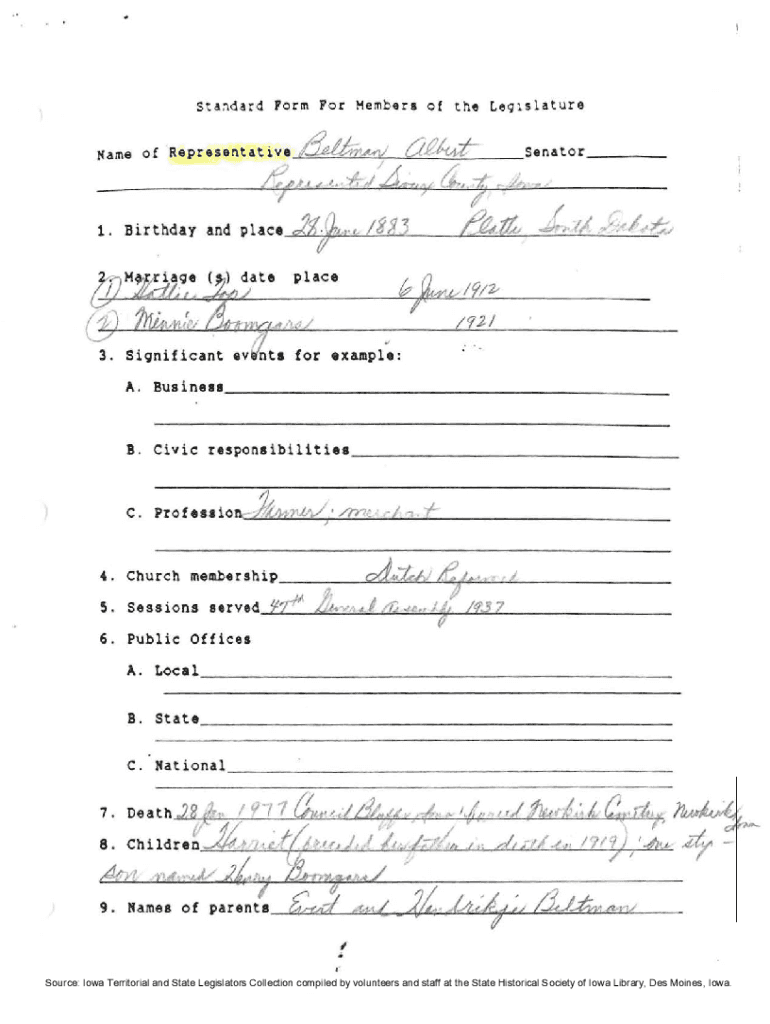 Standard Form For Members of the Legislature
Name of Representative Beltman, Albert Senator
Represented Sioux County, Iowa
1. Birthday and place 28 June 1883 Platte, South Dakota
2. Marriage (s) date place
(1) 6 June 1912
(2) Minnie Boomgars 1921
3. Significant events for example:
A. Business
B. Civic responsibilities
C. Profession Farmer; merchant
4. Church membership Dutch Reformed
5. Sessions served 47th General Assembly 1937
6. Public Offices
A. Local
B. State
C. National
7. Death 28 Jan 1977 Council Bluffs, Iowa; Newkirk Cemetery, Newkirk, Iowa
8. Children Harriet (preceded her father in death in 1919); one step-
son named Henry Boomgars
9. Names of parents Evert and Hendrikje Beltman
Source: Iowa Territorial and State Legislators Collection compiled by volunteers and staff at the State Historical Society of Iowa Library, Des Moines, Iowa.